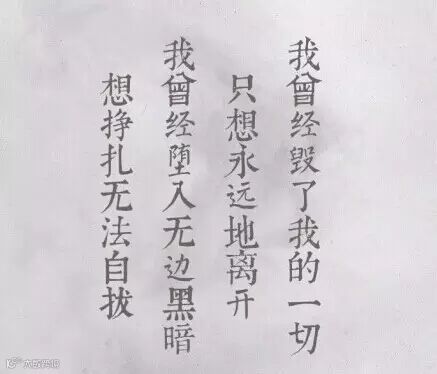 我曾经毁了我的一切
只想永远地离开
我曾经堕入无边黑暗
想挣扎无法自拔